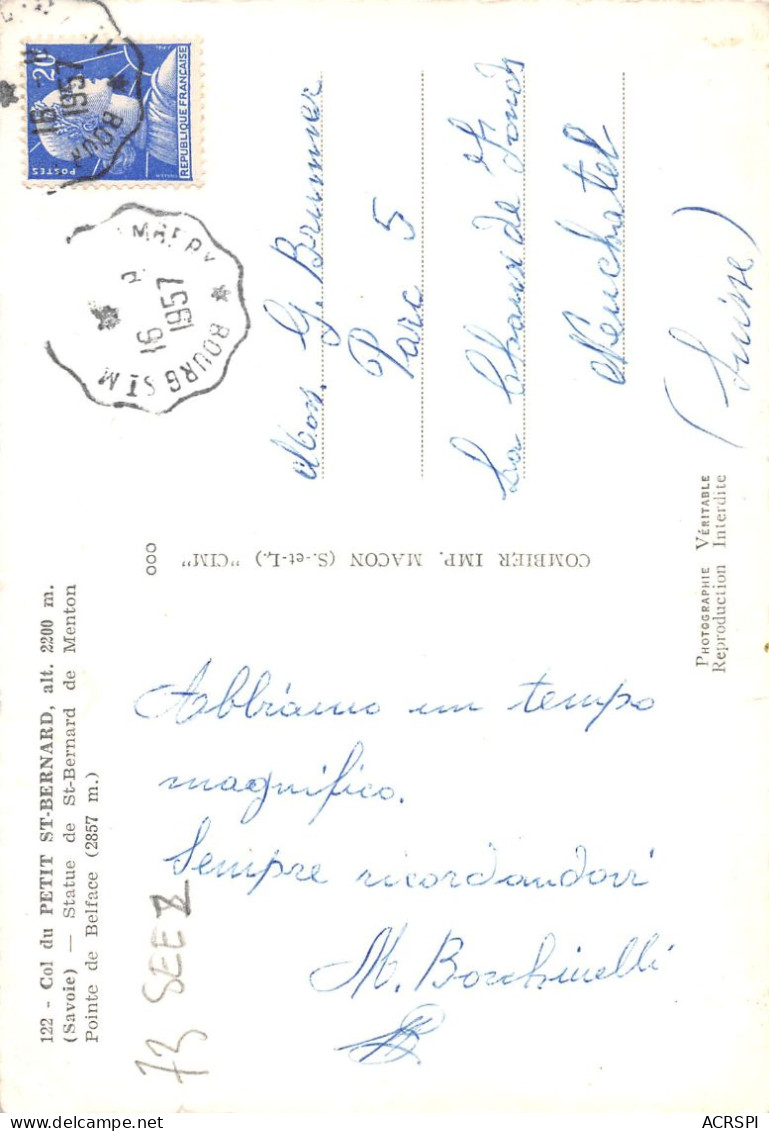 122 - Col du PETIT ST-BERNARD, alt. 2200 m.
(Savoie) — Statue de St-Bernard de Menton
Pointe de Belface (2857 m.)
73 SEEZ
Abbiamo un tempo
magnifico.
Sempre ricordandovi
M. Borchinelli
COMBIER IMP. MACON (S.-et-L.) "CIM"
000
PHOTOGRAPHIE VÉRITABLE
Reproduction Interdite
20F
POSTES
REPUBLIQUE FRANÇAISE
16
1957
BOUR
MBERY
16
1957
BOURG ST M
Mons. G. Brunner
Parc 5
La Chaux de Fonds
Neuchatel
(Suisse)
ACRSPI